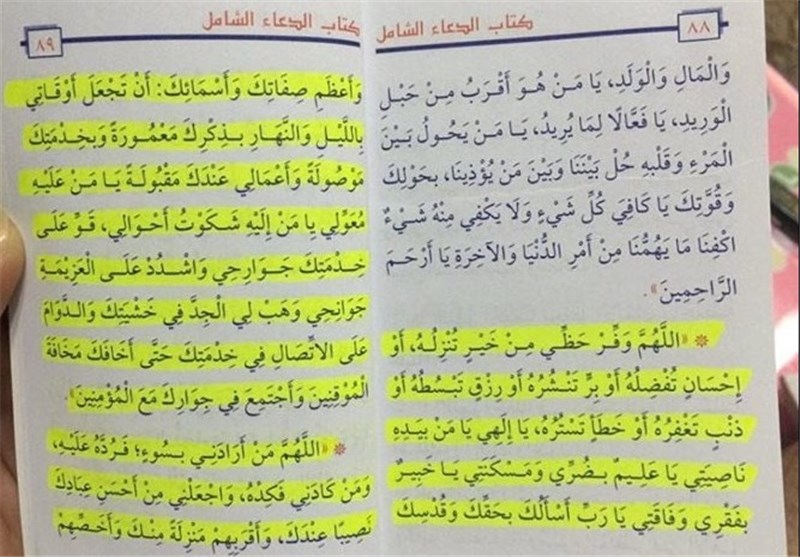 ٨٨
كتاب الدعاء الشامل
وَالْمَالِ وَالْوَلَدِ، يَا مَـنْ هُـوَ أَقْرَبُ مِـنْ حَبْلِ
الْوَرِيدِ، يَا فَعَّالًا لِمَا يُرِيدُ، يَـا مَـنْ يَحُولُ بَيْنَ
الْمَرْءِ وَقَلْبِهِ حُلْ بَيْنَنَا وَبَيْنَ مَنْ يُؤْذِينَا، بِحَوْلِكَ
وَقُوَّتِكَ يَا كَافِيَ كُلِّ شَيْءٍ وَلَا يَكْفِي مِنْهُ شَيْءٌ
اكْفِنَا مَا يَهُمُّنَا مِنْ أَمْرِ الدُّنْيَا وَالآخِرَةِ يَا أَرْحَمَ
الرَّاحِمِينَ».
* «اللَّهُمَّ وَفِّرْ حَظِّي مِـنْ خَيْرٍ تُنْزِلُـهُ، أَوْ
إِحْسَانٍ تُفْضِلُهُ أَوْ بِرٍّ تَنْشُرُهُ أَوْ رِزْقٍ تَبْسُطُهُ أَوْ
ذَنْبٍ تَغْفِرُهُ أَوْ خَطَأٍ تَسْتُرُهُ، يَا إِلَهِي يَا مَنْ بِيَدِهِ
نَاصِيَتِي يَا عَلِيـمٌ بِضُرِّي وَمَسْكَنَتِي يَـا خَبِيرٌ
بِفَقْرِي وَفَاقَتِي يَا رَبِّ أَسْأَلُكَ بِحَقِّكَ وَقُدْسِكَ
كتاب الدعاء الشامل
٨٩
وَأَعْظَمِ صِفَاتِكَ وَأَسْمَائِكَ: أَنْ تَجْعَلَ أَوْقَـاتِي
بِاللَّيْـلِ وَالنَّهَـارِ بِـذِكْرِكَ مَعْمُـورَةً وَبِخِدْمَتِكَ
مَوْصُولَةً وَأَعْمَالِي عِنْدَكَ مَقْبُولَـةً يَـا مَـنْ عَلَيْهِ
مُعَوَّلِي يا مَنْ إِلَيْهِ شَـكَوْتُ أَحْـوَالِي، قَـوِّ عَلَـى
خِـدْمَتِكَ جَـوَارِحِي وَاشْـدُدْ عَلَـى الْعَزِيْمَـةِ
جَوَانِحِي وَهَبْ لِي الْجِدَّ فِي خَشْيَتِكَ وَالـدَّوَامَ
عَلَى الاتِّصَالِ فِي خِدْمَتِكَ حَتَّى أَخَافَكَ مَخَافَةَ
الْمُوْقِنِينَ وَأَجْتَمِعَ فِي جِوَارِكَ مَعَ الْمُؤْمِنِينَ».
* «اللَّهُمَّ مَنْ أَرَادَنِي بِسُوءٍ؛ فَـرُدَّهُ عَلَيْهِ،
وَمَنْ كَادَنِي فَكِدْهُ، وَاجْعَلْنِي مِنْ أَحْسَنِ عِبَادِكَ
نَصِيبًا عِنْدَكَ، وَأَقْرَبِهِمْ مَنْزِلَةً مِنْـكَ وَأَخَصِّهِمْ